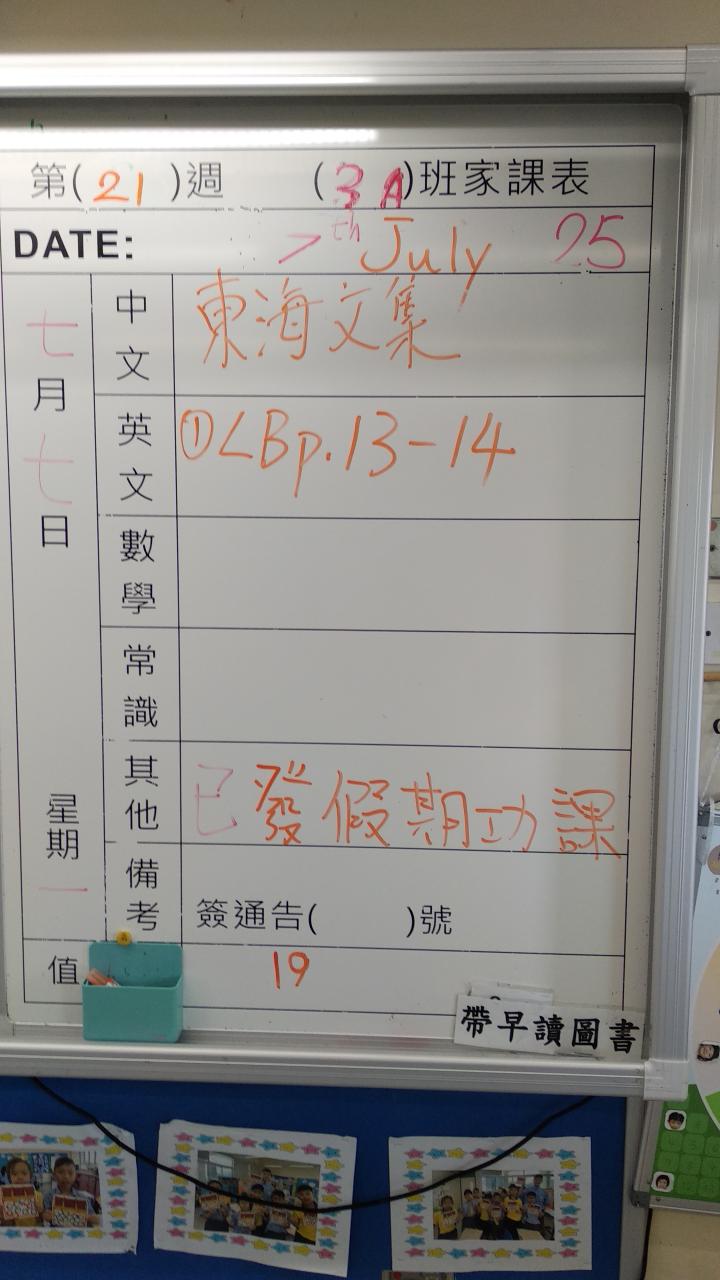 第(21)週 (3A)班家課表
DATE: 7th July 25
七月七日 星期一
中文 東海文集
英文 ①LBp.13-14
數學
常識
其他 已發假期功課
備考 簽通告( )號
值 19
帶早讀圖書